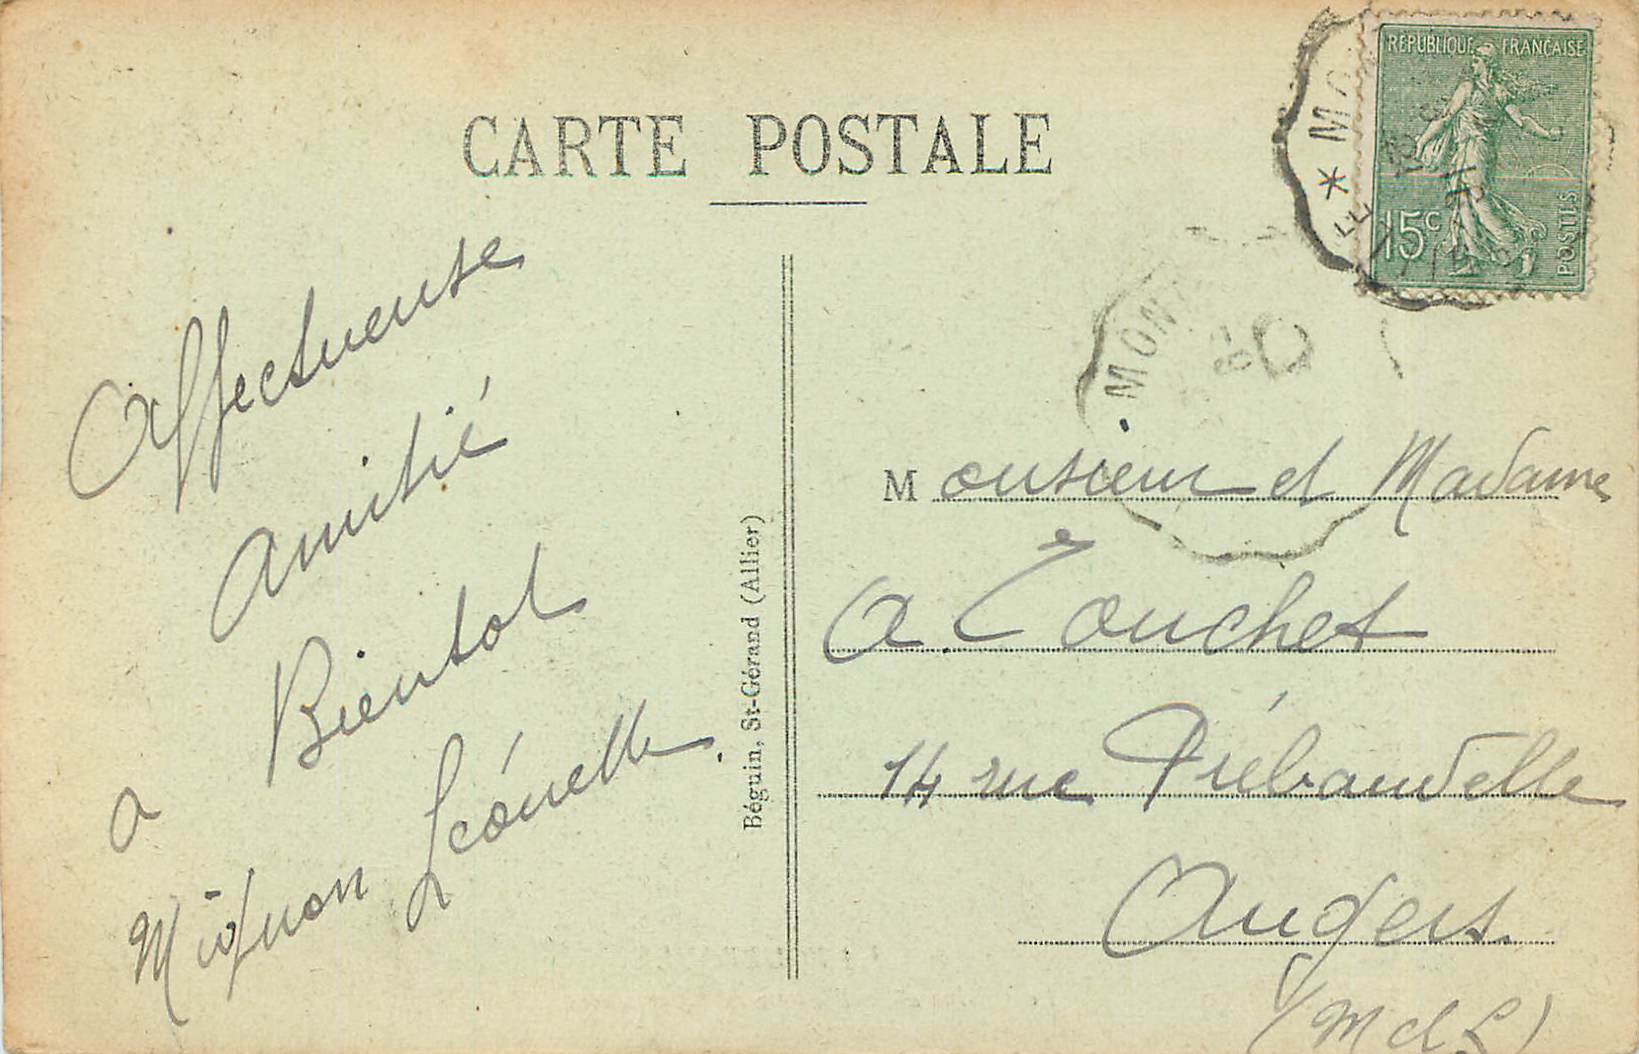 CARTE POSTALE
RÉPUBLIQUE FRANÇAISE
15c
POSTES
* MO
MONT
Affectueuse
Amitié
a Bientot
Mignon Léonelle
Béguin, St-Gérand (Allier)
Monsieur et Madame
A Touchet
14 rue Piébaudelle
Angers.
(M et L)